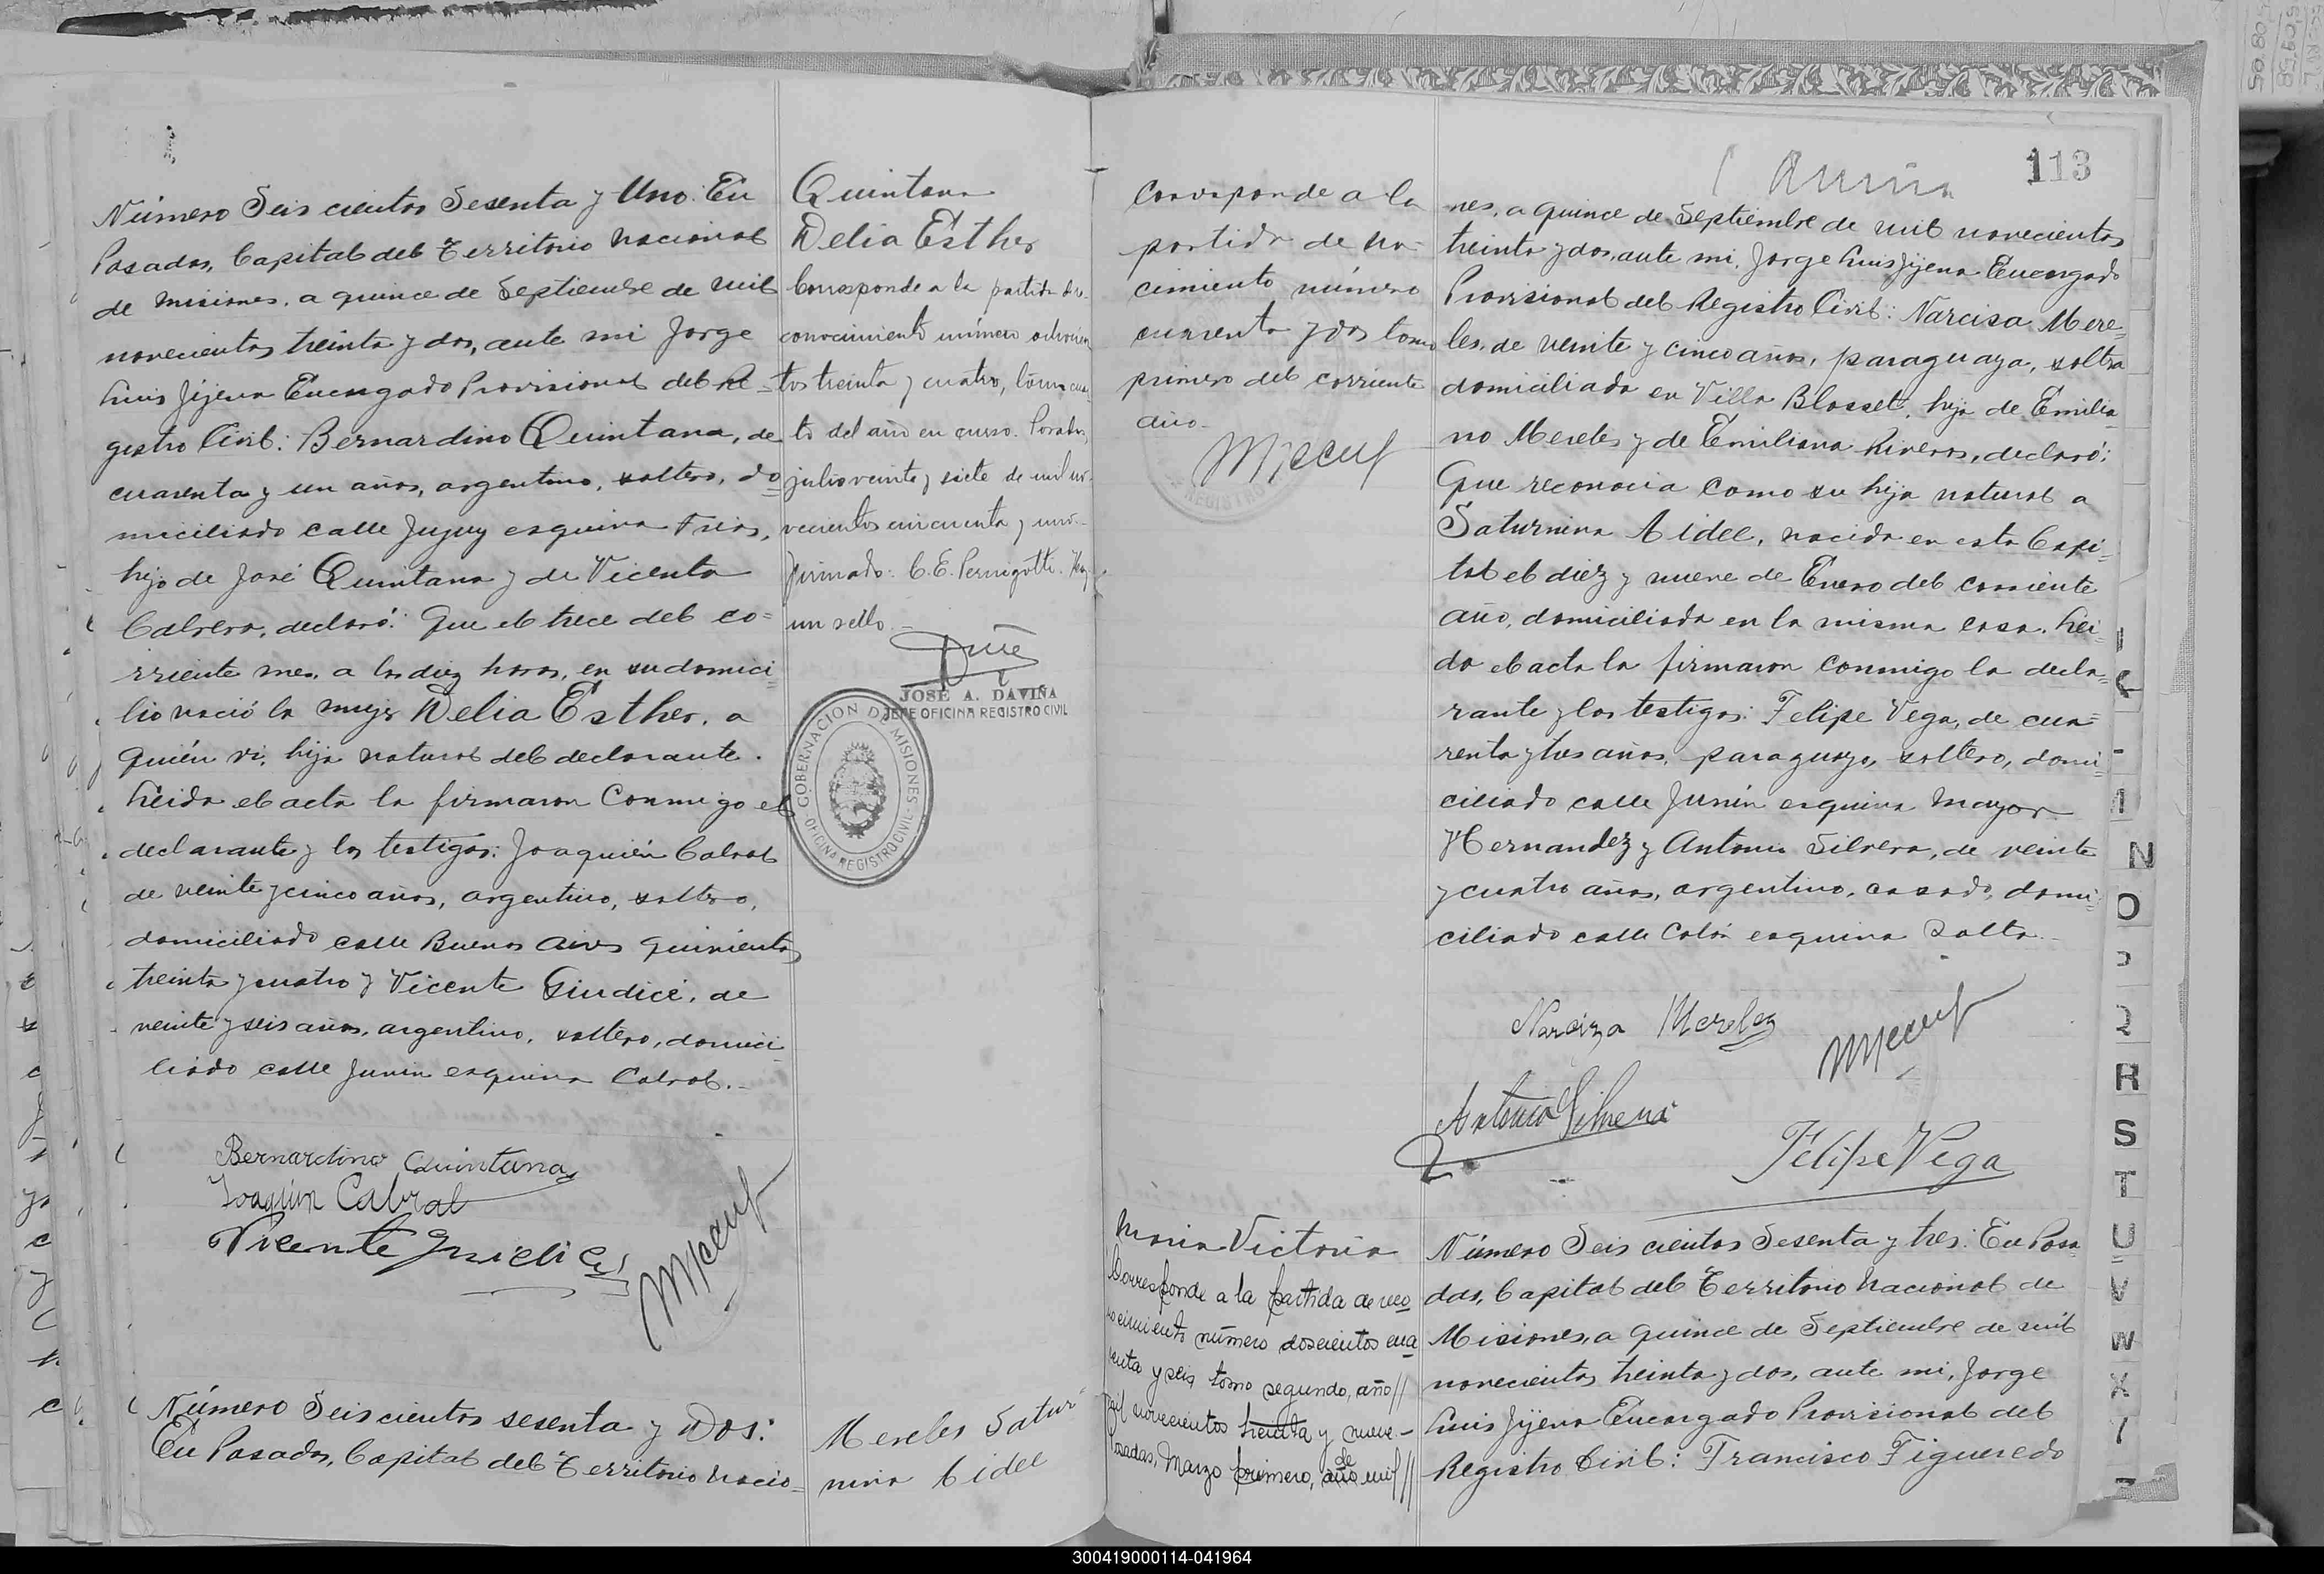 Número Seis cientos Sesenta y Uno: En
Posadas, Capital del Territorio Nacional
de Misiones, a quince de Septiembre de mil
novecientos treinta y dos, ante mi Jorge
Luis Jijena Encargado Provisional del Re=
gistro Civil: Bernardino Quintana, de
cuarenta y un años, argentino, soltero, do=
miciliado calle Jujuy esquina Frias,
hijo de José Quintana y de Vicenta
Cabrera, declaró: Que el trece del co=
rriente mes, a las diez horas, en su domici=
lio nació la mujer Delia Esther, a
quién vi, hija natural del declarante.
Leída el acta la firmaron Conmigo el
declarante y los testigos: Joaquién Cabral
de veinte y cinco años, argentino, soltero,
domiciliado calle Buenos Aires quinientos
treinta y cuatro y Vicente Giudice, de
veinte y seis años, argentino, soltero, domici
liado calle Junín esquina Cabral.-
Bernardino Quintana
Joaquin Cabral
Vicente Giudice
Número Seis cientos sesenta y Dos:
En Posadas, Capital del Territorio Nacio=
Quintana
Delia Esther
Corresponde a la partida de re-
conocimiento número ochocien
tos treinta y cuatro, tomo cua-
to del año en curso. Posadas,
julio veinte y siete de mil no-
vecientos cincuenta y uno.-
firmado: C. E. Pernigotti. Hay
un sello.-
JOSE A. DAVIÑA
JEFE OFICINA REGISTRO CIVIL
GOBERNACION DE MISIONES
OFICINA REGISTRO CIVIL
Mereles Satur
nina Aidee
Corresponde a la
partida de na-
cimiento número
cuarenta y dos tomo
primero del corriente
año.
REGISTRO
113
nes, a quince de Septiembre de mil novecientos
treinta y dos, ante mi, Jorge Luis Jijena Encargado
Provisional del Registro Civil: Narcisa Mere=
les, de veinte y cinco años, paraguaya, soltera
domiciliada en Villa Blosset, hija de Emilia
no Mereles y de Emiliana Riveros, declaró:
Que reconocia como su hija natural a
Saturnina Aidee, nacida en esta Capi=
tal el diez y nueve de Enero del corriente
año, domiciliada en la misma casa. Leí=
da el acta la firmaron Conmigo la decla=
rante y los testigos: Felipe Vega, de cua=
renta y tres años, paraguayo, soltero, domi=
ciliado calle Junín esquina Mayor
Hernandez y Antonio Silvera, de veinte
y cuatro años, argentino, casado, domi=
ciliado calle Colón esquina Salta.-
Narciza Mereles
Antonio Silvera
Felipe Vega
Maria Victoria
Corresponde a la partida de reco
nocimiento número doscientos cua
renta y seis tomo segundo, año //
mil novecientos treinta y nueve.-
Posadas, Marzo primero, de mil //
Número Seis cientos Sesenta y tres: En Posa=
das, Capital del Territorio Nacional de
Misiones, a quince de Septiembre de mil
novecientos treinta y dos, ante mi, Jorge
Luis Jijena Encargado Provisional del
Registro Civil: Francisco Figueredo
N
R
S
T
U
V
W
X
300419000114-041964